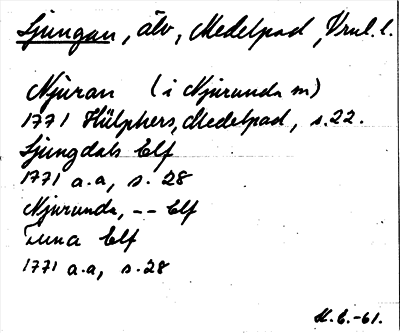 Ljungan, älv, Medelpad, Vrnl. l.
Njuran (i Njurunda m)
1771 Hülphers, Medelpad, s. 22.
Ljungdals Elf
1771 a.a, s. 28
Njurunda, -- Elf
Tuna Elf
1771 a.a, s. 28
-61.